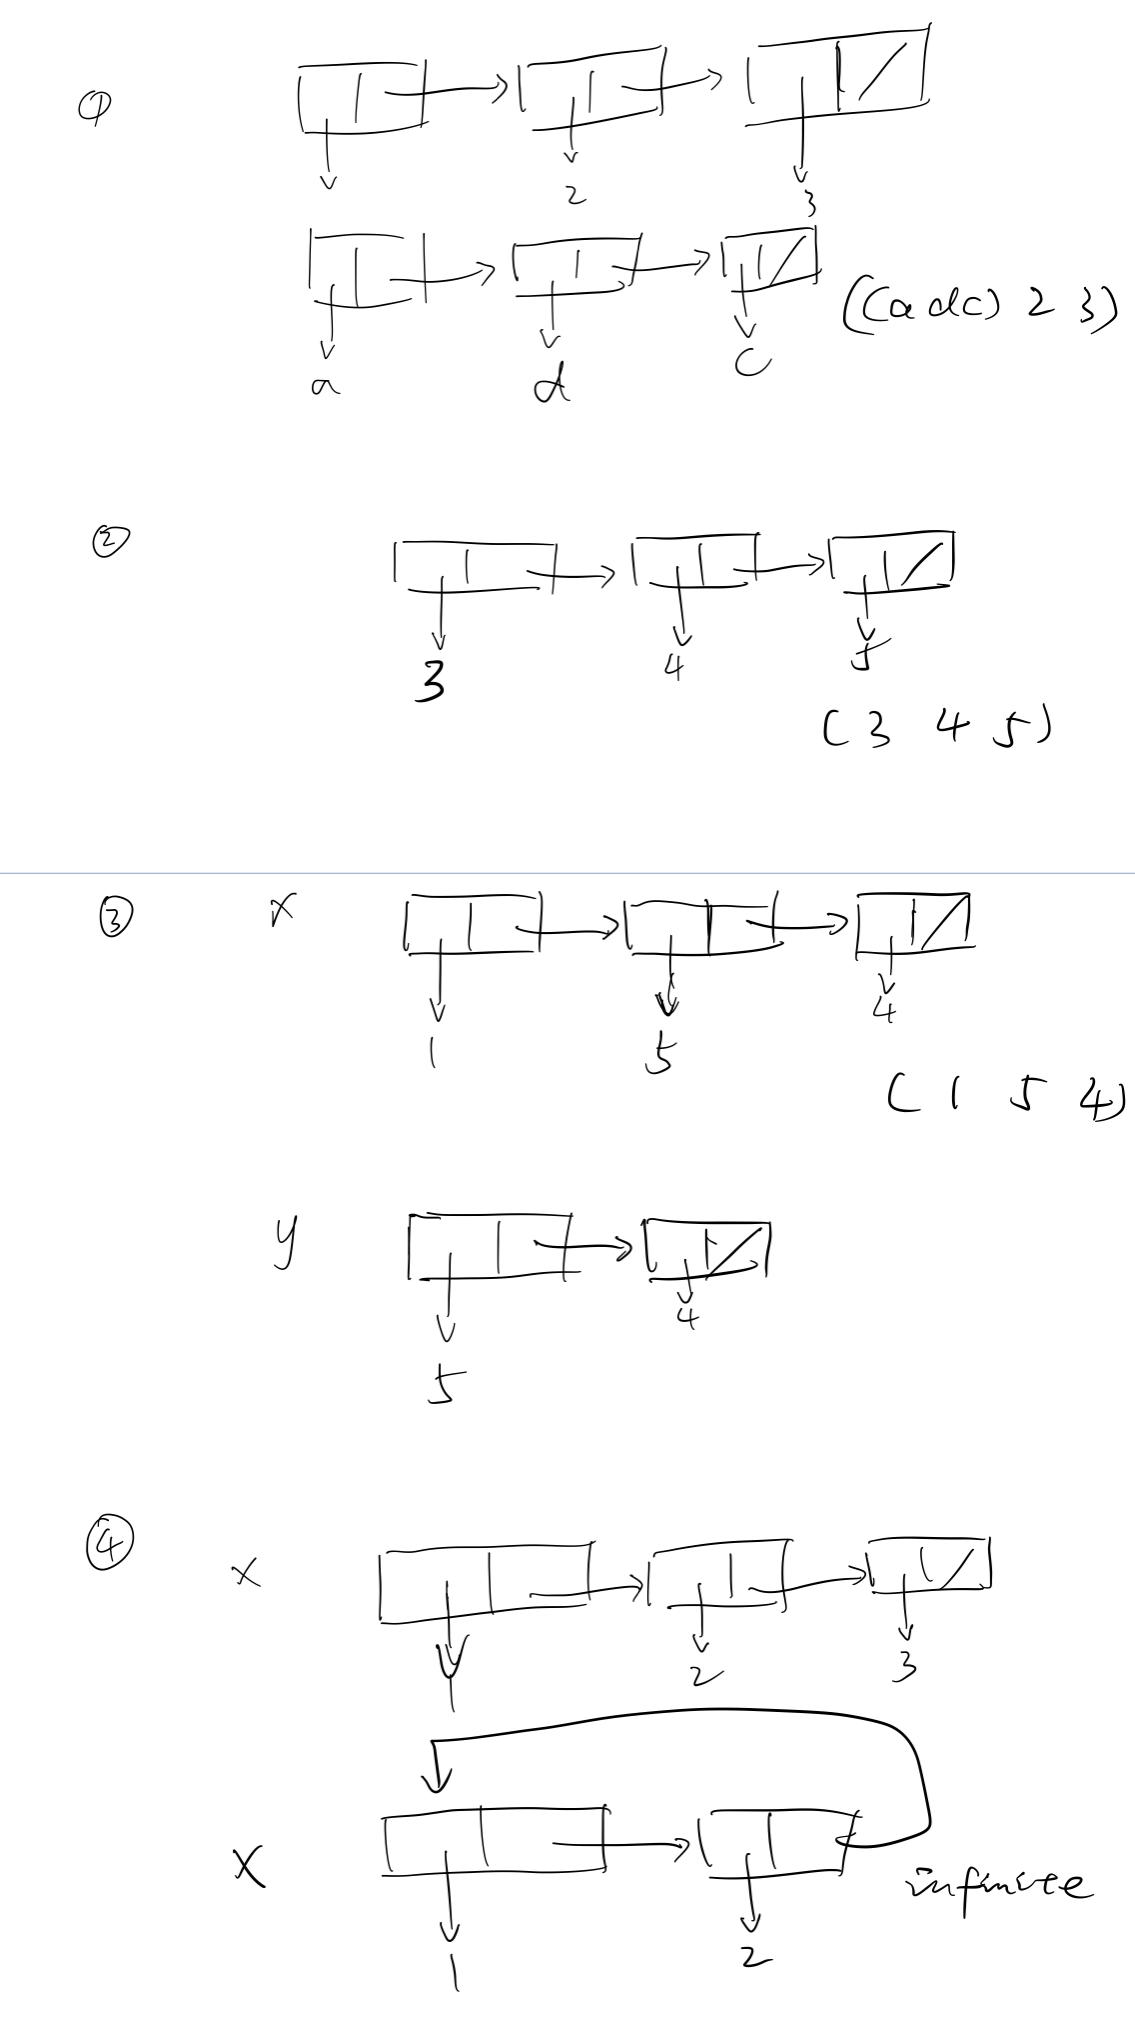 ①
2
3
((a d c) 2 3)
a
d
c
②
3
4
5
(3 4 5)
③
x
1
5
4
(1 5 4)
y
5
4
④
x
1
2
3
x
infinite
1
2